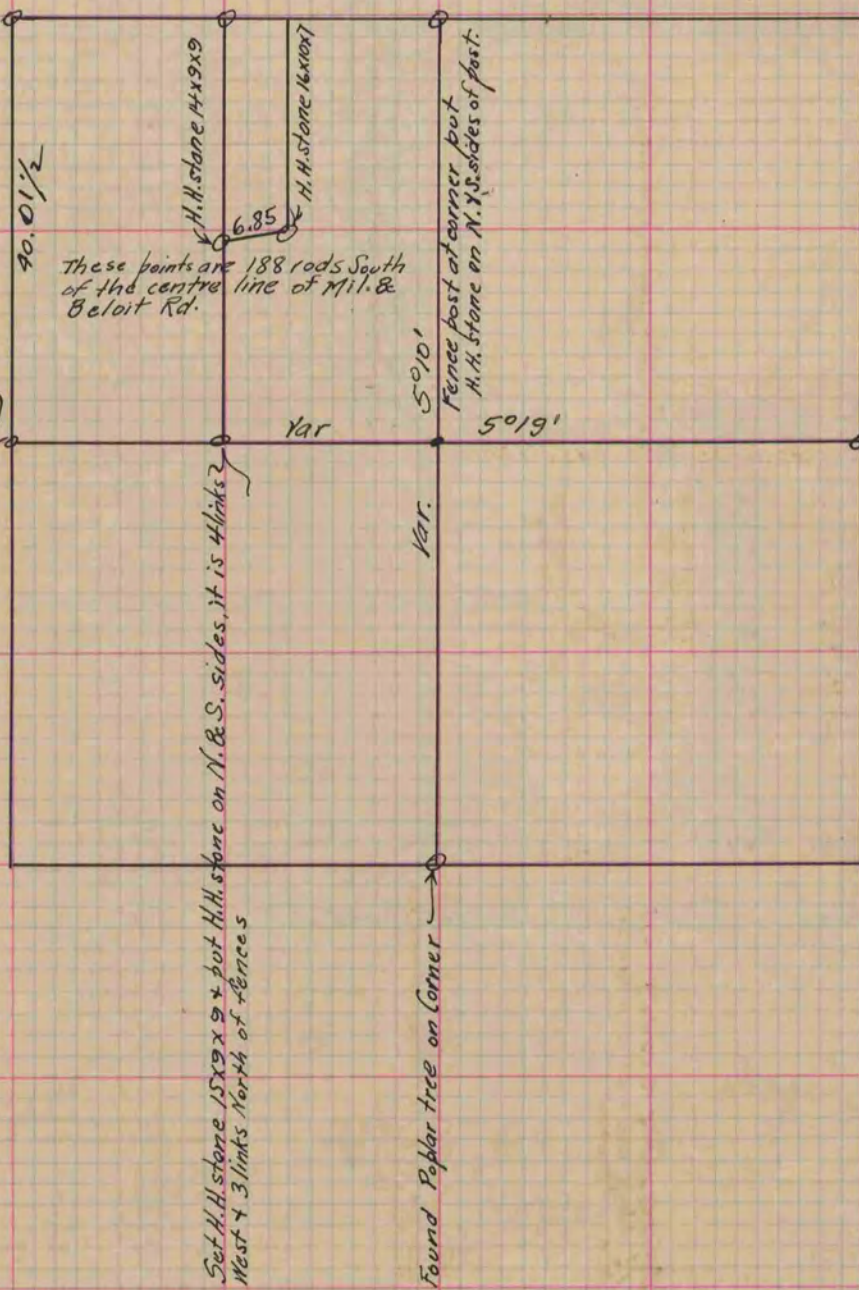 40.01 1/2
H.H. stone 14x9x9
6.85
H.H. stone 16x10x7
These points are 188 rods South
of the centre line of Mil. &
Beloit Rd.
Fence post at corner put
H.H. stone on N. & S. sides of post.
5°10'
Var
5°19'
Var.
Set H.H. stone 15x9x9 + put H.H. stone on N. & S. sides, it is 4 links
West + 3 links North of fences
Found Poplar tree on Corner